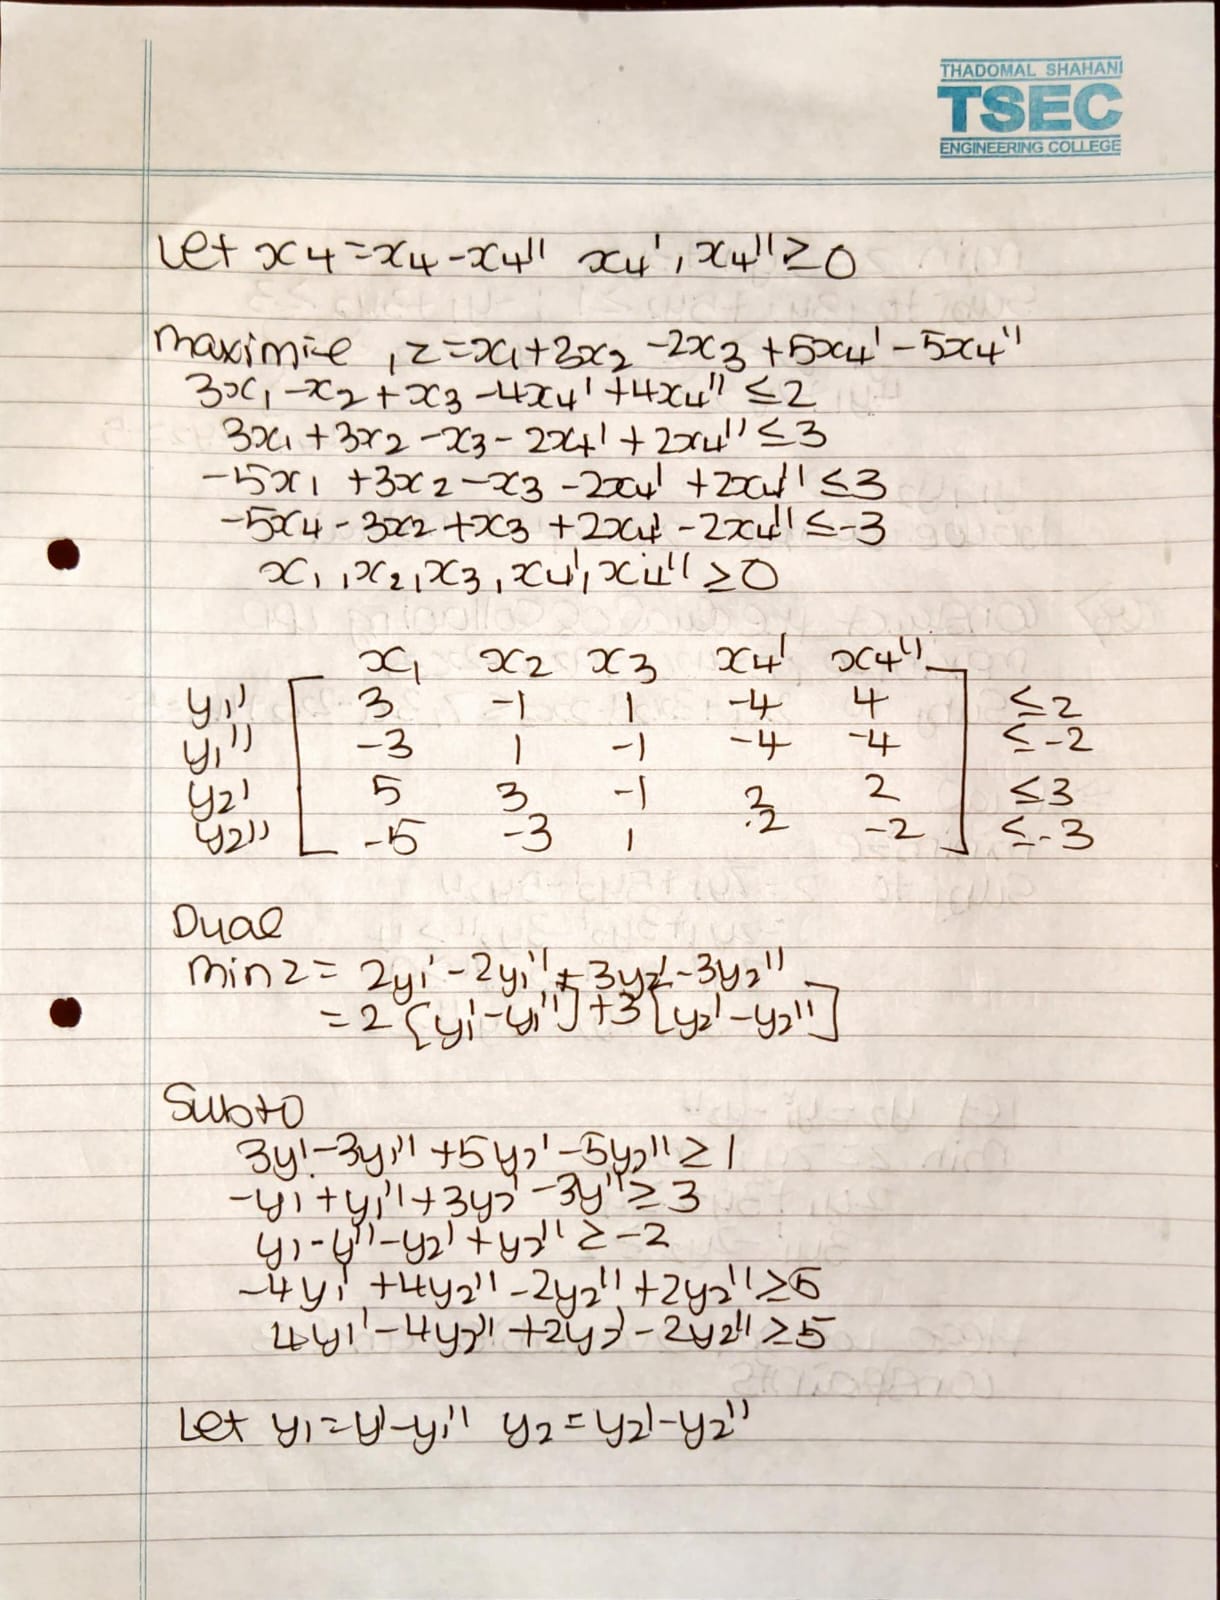 THADOMAL SHAHANI
TSEC
ENGINEERING COLLEGE
Let x4 = x4 - x4'' x4', x4'' ≥ 0
Maximize , z = x1 + 3x2 - 2x3 + 5x4' - 5x4''
3x1 - x2 + x3 - 4x4' + 4x4'' ≤ 2
3x1 + 3x2 - x3 - 2x4' + 2x4'' ≤ 3
-5x1 + 3x2 - x3 - 2x4' + 2x4'' ≤ 3
-5x4 - 3x2 + x3 + 2x4' - 2x4'' ≤ -3
x1, x2, x3, x4', x4'' ≥ 0
x1 x2 x3 x4' x4''
y1' 3 -1 1 -4 4 ≤ 2
y1'' -3 1 -1 -4 -4 ≤ -2
y2' 5 3 -1 2 2 ≤ 3
y2'' -5 -3 1 -2 -2 ≤ -3
Dual
min z = 2y1' - 2y1'' + 3y2' - 3y2''
= 2 [y1' - y1''] + 3 [y2' - y2'']
Subto
3y' - 3y1'' + 5y2' - 5y2'' ≥ 1
-y1 + y1'' + 3y2' - 3y'' ≥ 3
y1 - y'' - y2' + y2'' ≥ -2
-4y1' + 4y2'' - 2y2'' + 2y2'' ≥ 5
4y1' - 4y2'' + 2y2' - 2y2'' ≥ 5
Let y1 = y' - y1'' y2 = y2' - y2''